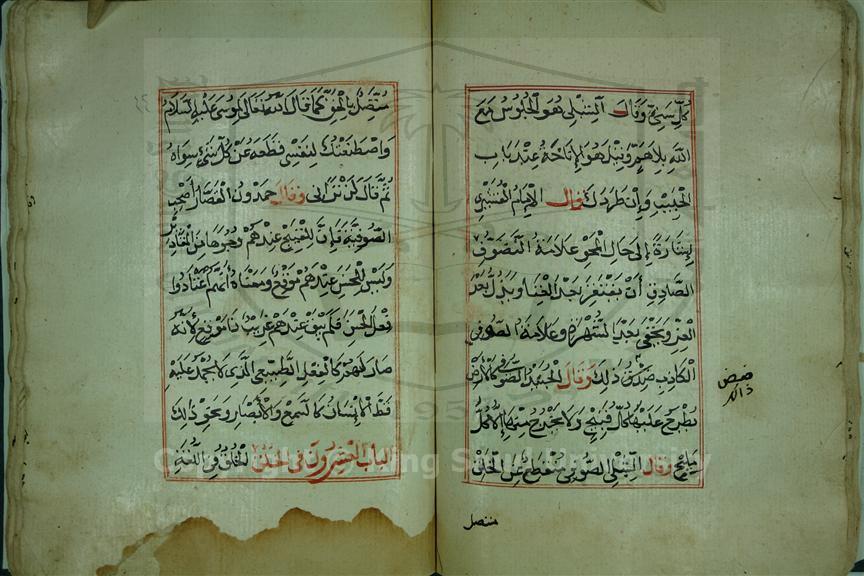 كل شيء وقال الشبلي هو الجلوس مع
الله بلا هم وقيل هو الإناخة عند باب
الحبيب وإن طرد وقال الإمام القشيري
إشارة إلى حال المحو علامة المتصوف
الصادق أن يفتقر بعد الغنا ويذل بعد
العز ويخفى بعد الشهرة وعلامة الصوفي
الكاذب ضد ذلك وقال الجنيد الصوفي كالأرض
يطرح عليها كل قبيح ولا يخرج منها إلا كل
مليح وقال الشبلي الصوفي منقطع عن الخلق
متصل
متصل بالحق كما قال الله تعالى لموسى عليه السلام
واصطنعتك لنفسي قطعه عن كل شيء سواه
ثم قال لن تراني وقال حمدون القصار اصحب
الصوفية فإن للقبيح عندهم وجوها من المعاذير
وليس للحسن عندهم موقع ومعناه أنهم اعتادوا
فعل الحسن فلم يبق عندهم غريب ذا موقع لأنه
صار لهم كالفعل الطبيعي الذي لا يحمد عليه
قط الإنسان كالسمع والأبصار ونحو ذلك
الباب العشرون في الخلق الخلق في اللغة